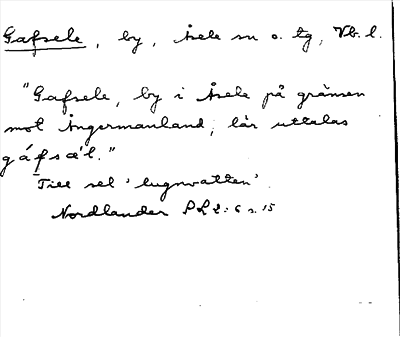 Gafsele, by, Åsele sn o. tg, Vb. l.
"Gafsele, by i Åsele på gränsen
mot Ångermanland; lär uttalas
gáfsæ'l."
Till sel 'lugnvatten'.
Nordlander SL 2:6 s. 15